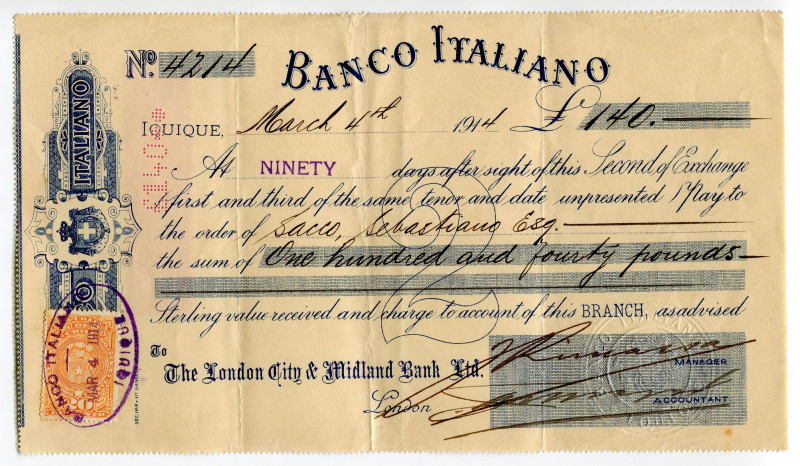 No. 4214
BANCO ITALIANO
IQUIQUE, March 4th 1914 £ 140.—
At NINETY days after sight of this Second of Exchange
first and third of the same tenor and date unpresented Pay to
the order of Sacco, Sebastiano Esq.
the sum of One hundred and fourty pounds
Sterling value received and charge to account of this BRANCH, as advised
To
The London City & Midland Bank Ltd.
London
MANAGER
ACCOUNTANT
ITALIANO
BANCO ITALIANO
MAR 4 1914
IQUIQUE
20
2